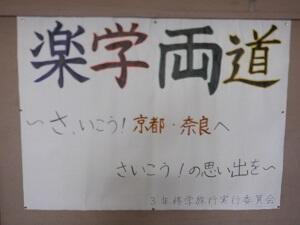 楽学両道
～さ、いこう！京都・奈良へ
さいこう！の思い出を～
3年修学旅行実行委員会